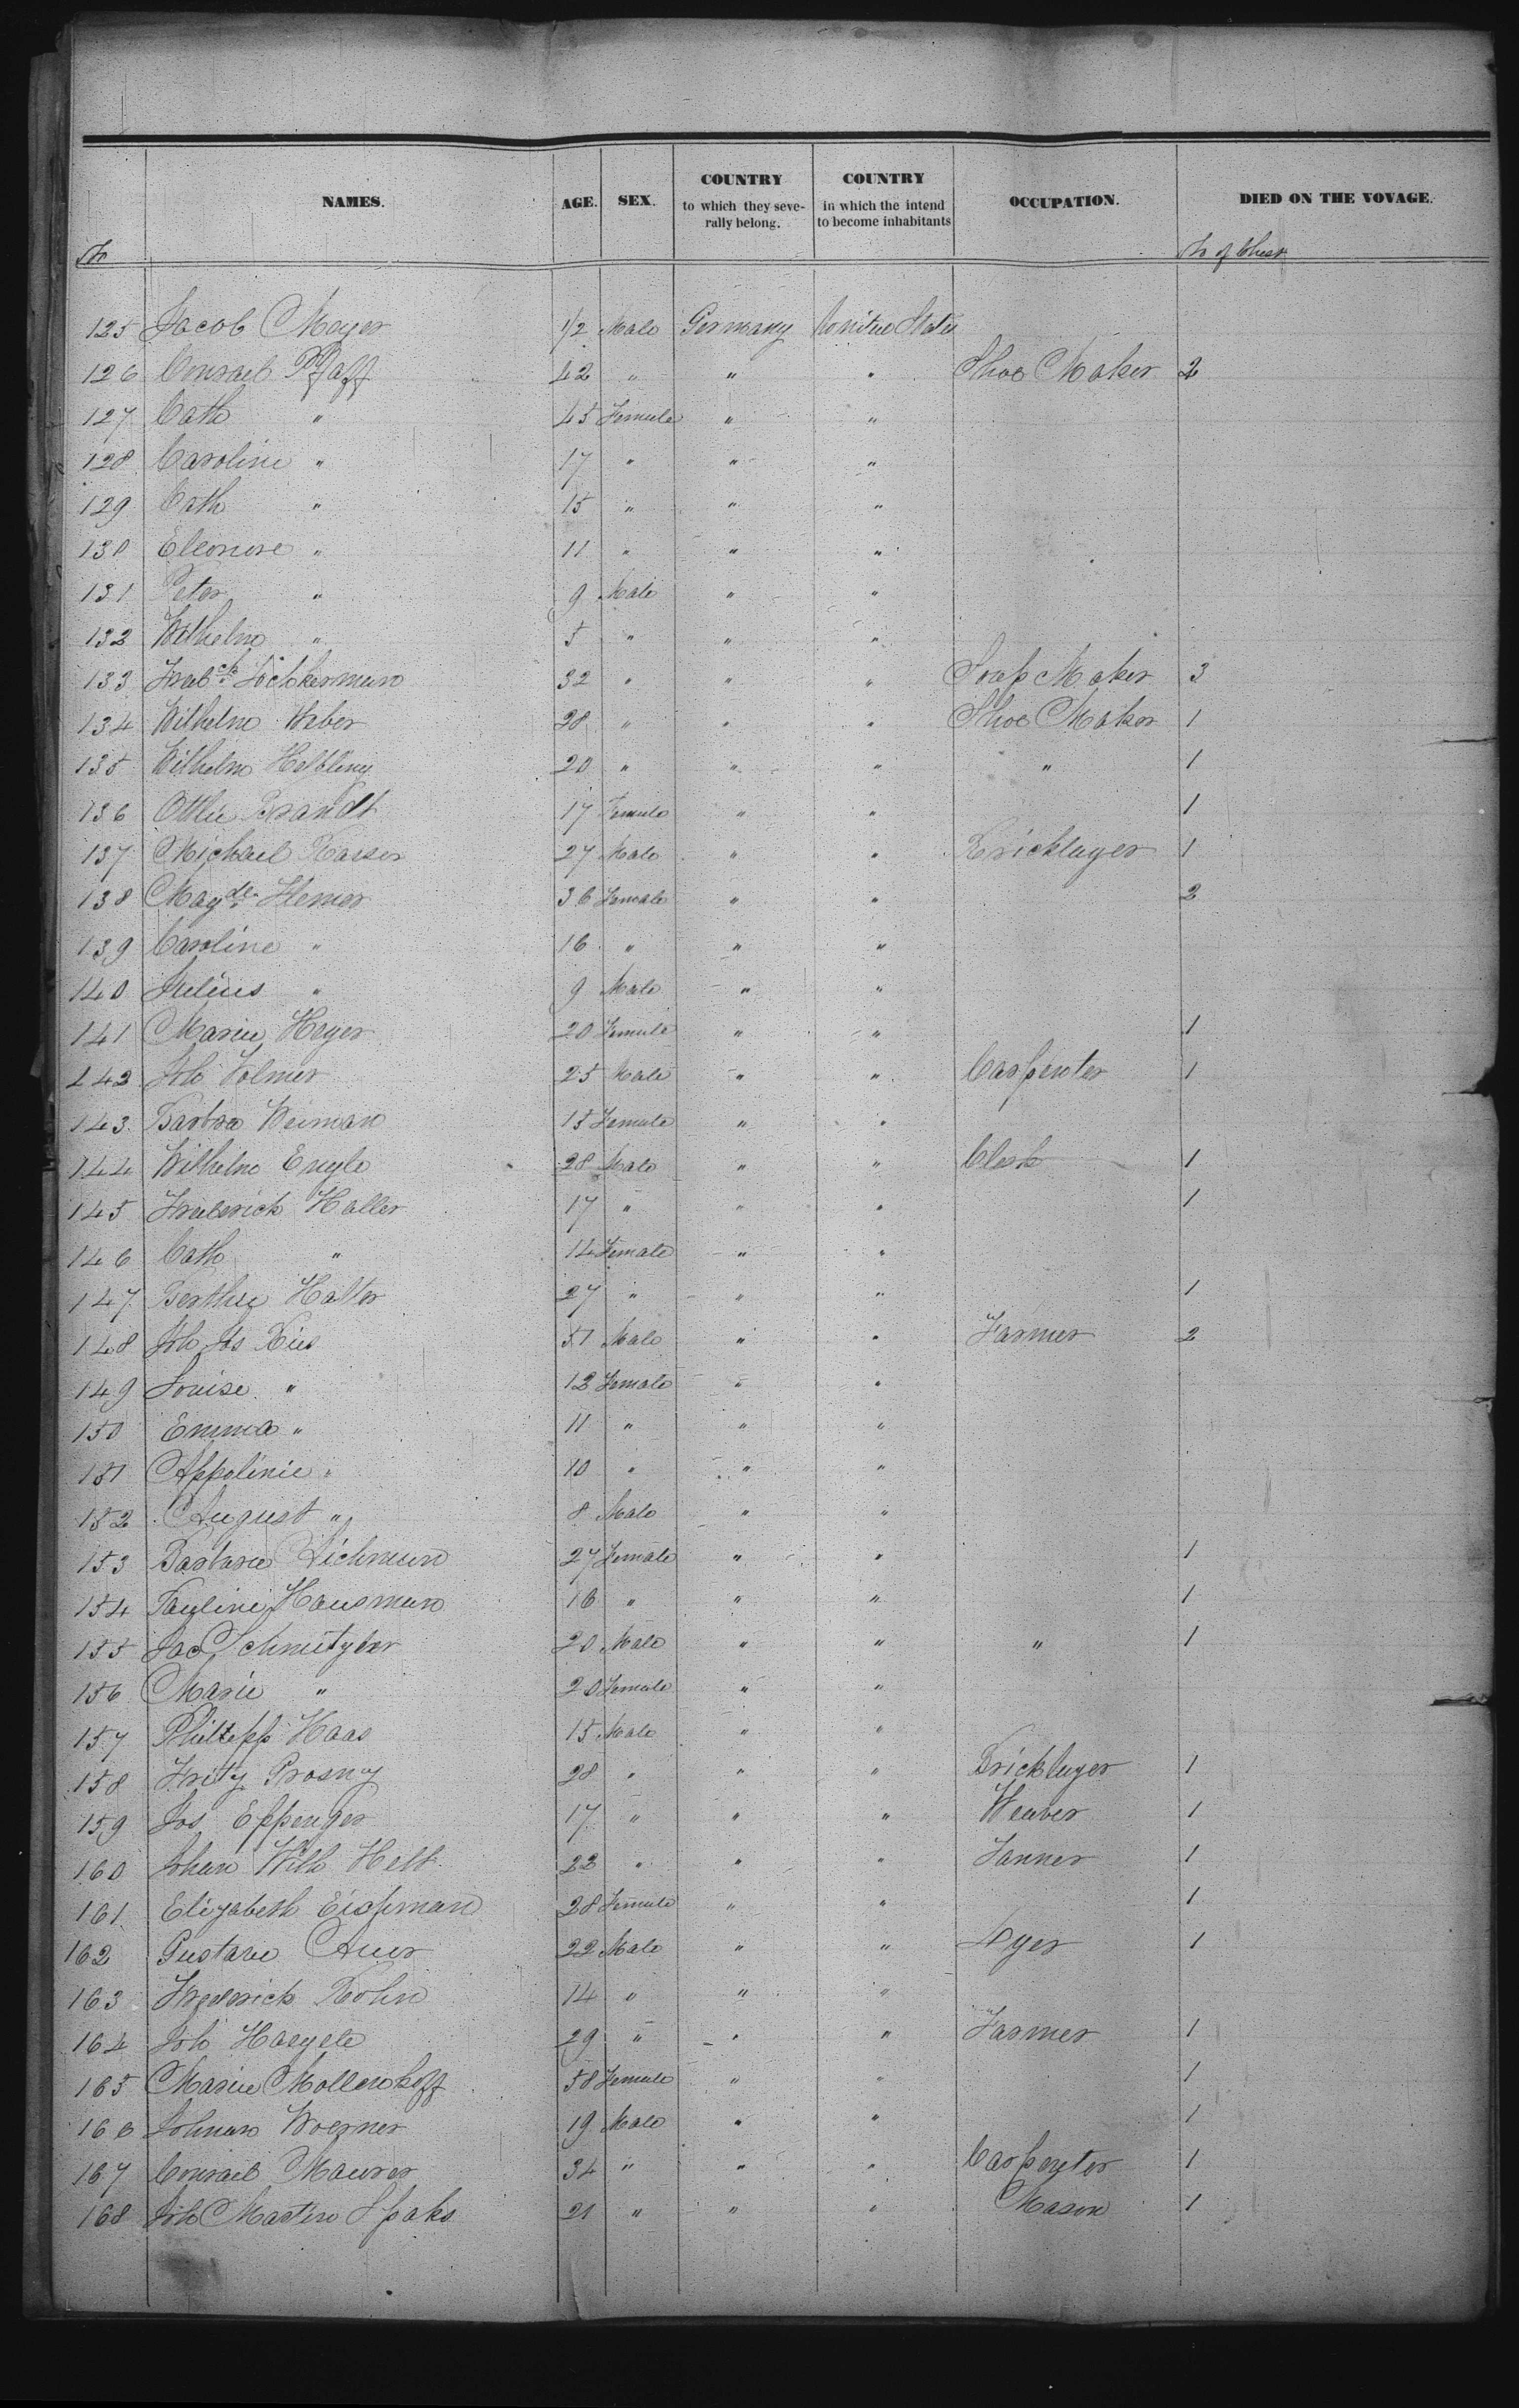 NAMES. AGE. SEX. COUNTRY to which they severally belong. COUNTRY in which the intend to become inhabitants OCCUPATION. DIED ON THE VOYAGE.
No No of Chest
125 Jacob Meyer 1/2 Male Germany United States
126 Conrad Pfaff 42 " " " Shoe Maker 2
127 Cath " 45 Female " "
128 Caroline " 17 " " "
129 Cath " 15 " " "
130 Eleonore " 11 " " "
131 Peter " 9 Male " "
132 Wilhelm " 5 " " "
133 32 " " " Soap Maker 3
134 Wilhelm Weber 28 " " " Shoe Maker 1
135 Wilhelm Helbling 20 " " " " 1
136 Ottlie Brandt 17 Female " " 1
137 Michael Kaiser 27 Male " " Bricklayer 1
138 Magde. Hemer 36 Female " " 2
139 Caroline " 16 " " "
140 Julius " 9 Male " "
141 Marie Heyer 20 Female " " 1
142 Joh Volmer 25 Male " " Carpenter 1
143 Barbra Weiman 15 Female " "
144 Wilhelm Engle 28 Male " " Clerk 1
145 Frederick Haller 17 " " " 1
146 Cath " 14 Female " "
147 Berthe 27 " " " 1
148 Joh Jos Ries 51 Male " " Farmer 2
149 Louise " 12 Female " "
150 Emma " 11 " " "
151 Appolinie " 10 " " "
152 August " 8 Male " "
153 Barbara 27 Female " " 1
154 Pauline Hausman 16 " " " 1
155 Jac 20 Male " " " 1
156 Marie " 20 Female " "
157 Phillipp Haas 15 Male " "
158 Fritz Prosny 28 " " " Bricklayer 1
159 Jos Eppenger 17 " " " Weaver 1
160 Johan Wilh Helt 22 " " " Tanner 1
161 Elizabeth Eichman 28 Female " " 1
162 Gustave Auer 22 Male " " Dyer 1
163 Frederick Kohn 14 " " "
164 Joh Haegele 29 " " " Farmer 1
165 Marie Mollenkoff 58 Female " " 1
166 Johann Woerner 19 Male " " 1
167 Conrad Maurer 34 " " " Carpenter 1
168 Joh Martin Spaks 21 " " " Mason 1